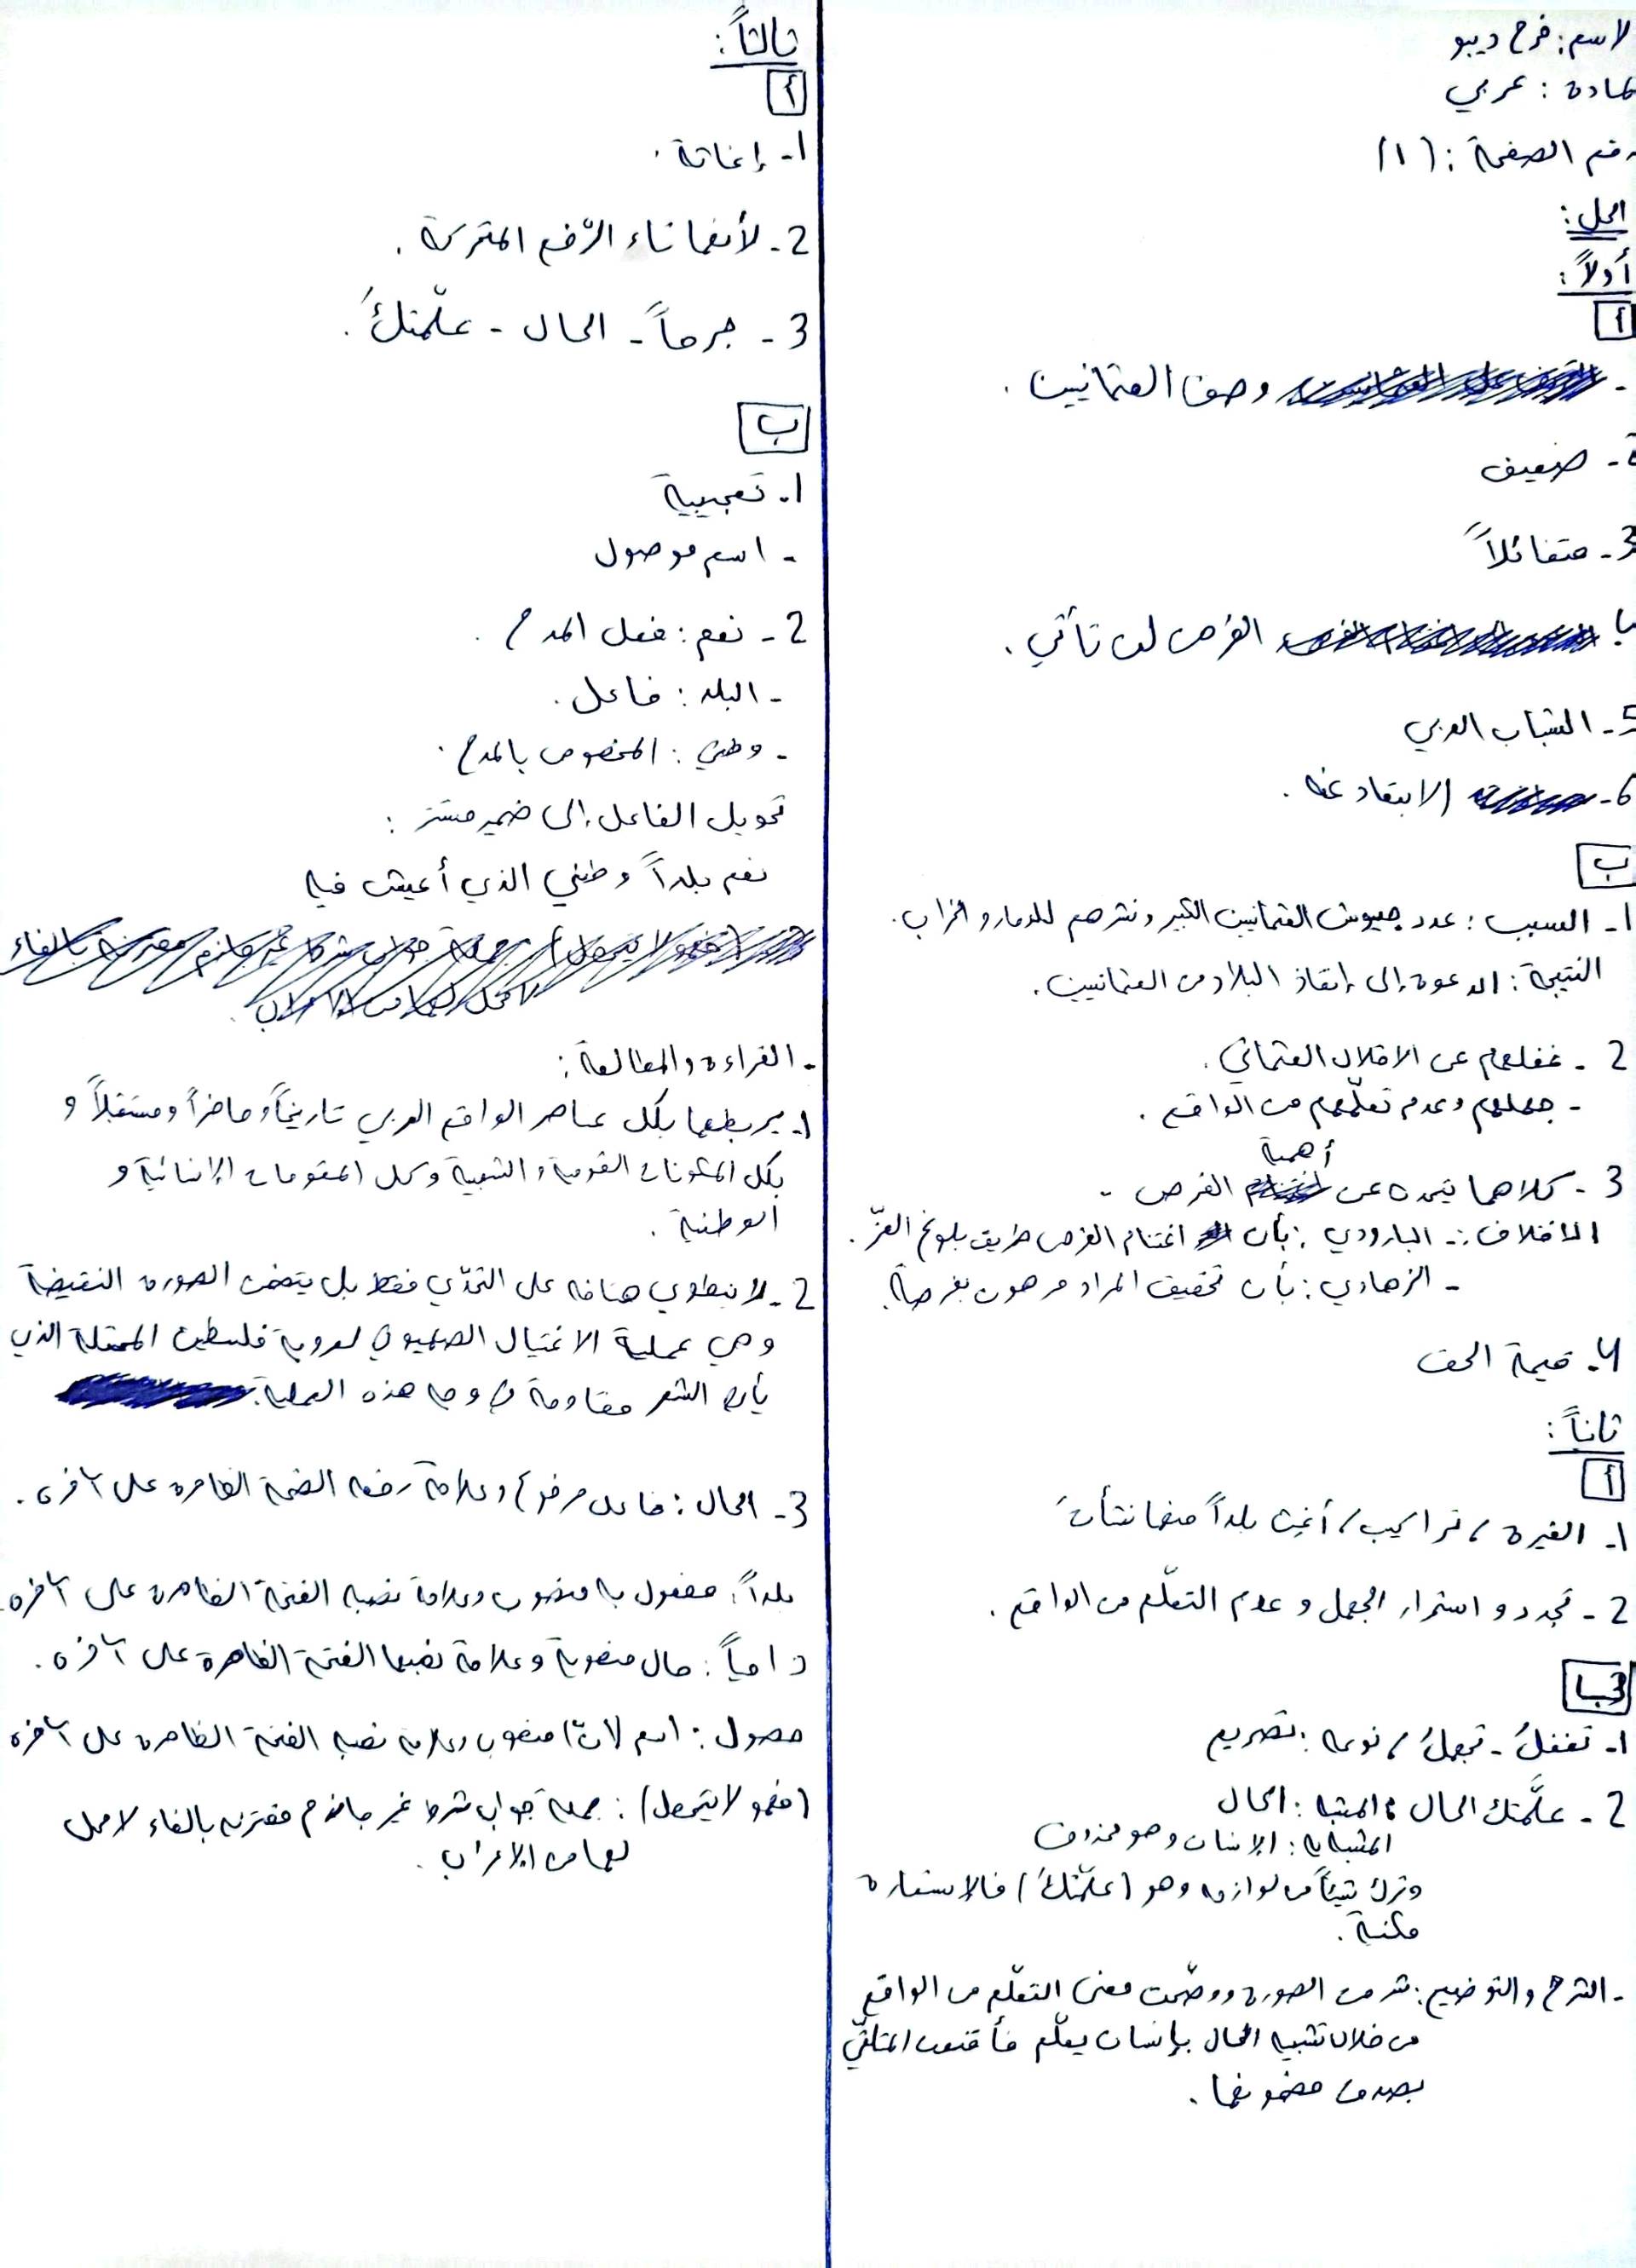 لاسم: فرح ديبو
لمادة: عربي
رقم الصفحة: (١)
الحل:
أولاً:
أ
- وصف العثمانيين.
2- ضعيف
3- متفائلاً
الفرص لن تأتي.
5- الشباب العربي
6- الابتعاد عنه.
ب
1- السبب: عدد جيوش العثمانيين الكبير ونشرهم للدمار والخراب.
النتيجة: الدعوة إلى إنقاذ البلاد من العثمانيين.
2- غفلهم عن الاحتلال العثماني.
- جهلهم وعدم تعلّمهم من الواقع.
3- كلاهما يتحدث عن أهمية الفرص -
الاختلاف:- البارودي: بأن اغتنام الفرص طريق بلوغ العزّ.
- الزهاوي: بأن تحقيق المراد مرهون بفرصة.
4- قيمة الحق
ثانياً:
أ
1- الغيرة، تراكيب، أغِث بلداً منها نشأتَ
2- تجدد و استمرار الجهل و عدم التعلّم من الواقع.
ب
1- تغفلُ - تجهلُ، نوعه: تصريع
2- علَّمتك الحال: المشبه: الحال
المشبه به: الإنسان وهو محذوف
وترك شيئاً من لوازمه وهو (علّمتكَ) فالاستعارة
مكنية.
- الشرح والتوضيح: شرحت الصورة ووضّحت معنى التعلّم من الواقع
من خلال تشبيه الحال بإنسان يعلّم فأقنعت المتلقّي
بصدق مضمونها.
ثالثاً:
أ
1- إغاثة.
2- لأنها تاء الرّفع المتحركة.
3- جرحاً - الحال - علّمتكَ.
ب
1- تعجبية
- اسم موصول
2- نعم: فعل المدح.
- البلد: فاعل.
- وطني: المخصوص بالمدح.
تحويل الفاعل إلى ضمير مستتر:
نعم بلداً وطني الذي أعيش فيه
- القراءة والمطالعة:
1- يربطها بكل عناصر الواقع العربي تاريخاً وحاضراً ومستقبلاً و
بكل المكونات القومية والشعبية وكل المقومات الإنسانية و
الوطنية.
2- لا ينطوي هتافه على التحدّي فقط بل يتضمن الصورة النقيضة
وهي عملية الاغتيال الصهيوني لعروبة فلسطين المحتلة الذي
يأتي الشعر مقاومة في وجه هذه العملية.
3- الحال: فاعل مرفوع وعلامة رفعه الضمة الظاهرة على آخره.
بلداً: مفعول به منصوب وعلامة نصبه الفتحة الظاهرة على آخره.
: حال منصوبة وعلامة نصبها الفتحة الظاهرة على آخره.
: اسم (لات) منصوب وعلامة نصبه الفتحة الظاهرة على آخره
(فهو لا يتمهل): جملة جواب شرط غير جازم مقترنة بالفاء لا محل
لها من الإعراب.